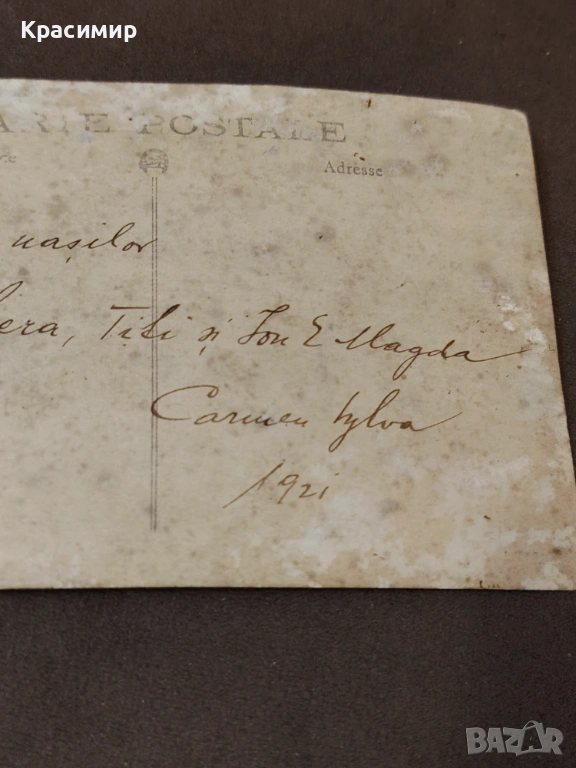 Красимир
ARTE POSTALE
Adresse
nașilor
era, Titi și Ion E Magda
Carmen Sylva
1921
BAZAR